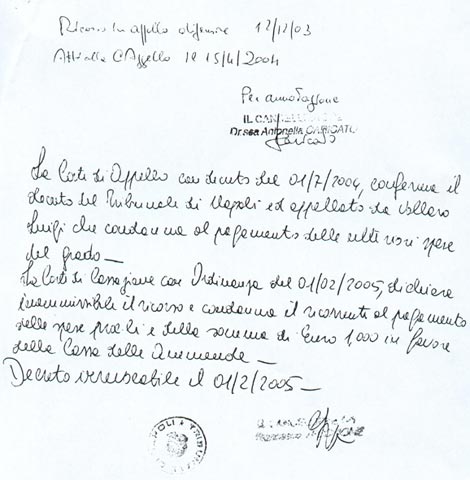 Ricorso in appello difensore 12/12/03
Atti alla C. Appello il 15/4/2004
Per annotazione
IL CANCELLIERE
Dr.ssa Antonella
La Corte di Appello con decreto del 01/7/2004, conferma il
decreto del Tribunale di Napoli ed appellato da Vollaro
Luigi che condanna al pagamento delle ulteriori spese
del grado —
La Corte di Cassazione con Ordinanza del 01/02/2005, dichiara
inammissibile il ricorso e condanna il ricorrente al pagamento
delle spese proc.li e della somma di Euro 1000 in favore
della Cassa delle Ammende —
Decreto irrevocabile il 01/2/2005 —